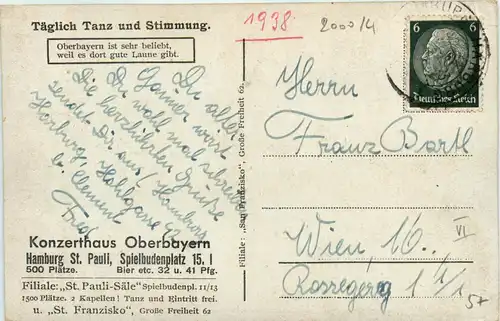 Täglich Tanz und Stimmung.
Oberbayern ist sehr beliebt,
weil es dort gute Laune gibt.
1938
2000/4
6 6
Deutsches Reich
Du alter
Gauner wirst
Du wohl mal schreiben
Die herzlichsten Grüße
sendet Dir aus Hamburg
Harburg,
Fred
Konzerthaus Oberbayern
Hamburg St. Pauli, Spielbudenplatz 15. I
500 Plätze. Bier etc. 32 u. 41 Pfg.
Filiale: „St. Pauli-Säle" Spielbudenpl. 11/13
1500 Plätze. 2 Kapellen! Tanz und Eintritt frei.
u. „St. Franzisko", Große Freiheit 62
Filiale: „San Franzisko", Große Freiheit 62.
Herrn
Franz Bartl
Wien, 16.
VI